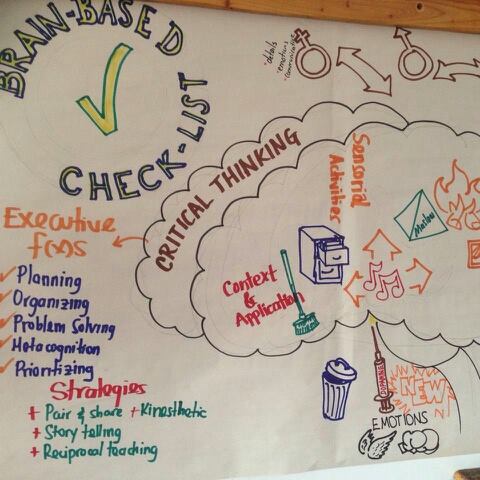 BRAIN-BASED
CHECK-LIST
• details
• emotions
• communication
CRITICAL THINKING
Sensorial
Activities
Maslow
Executive
fxns
✓ Planning
✓ Organizing
✓ Problem Solving
✓ Metacognition
✓ Prioritizing
Context
&
Application
Strategies
+ Pair & share + Kinesthetic
+ Story telling
+ Reciprocal teaching
DOPAMINE
NEW
EMOTIONS